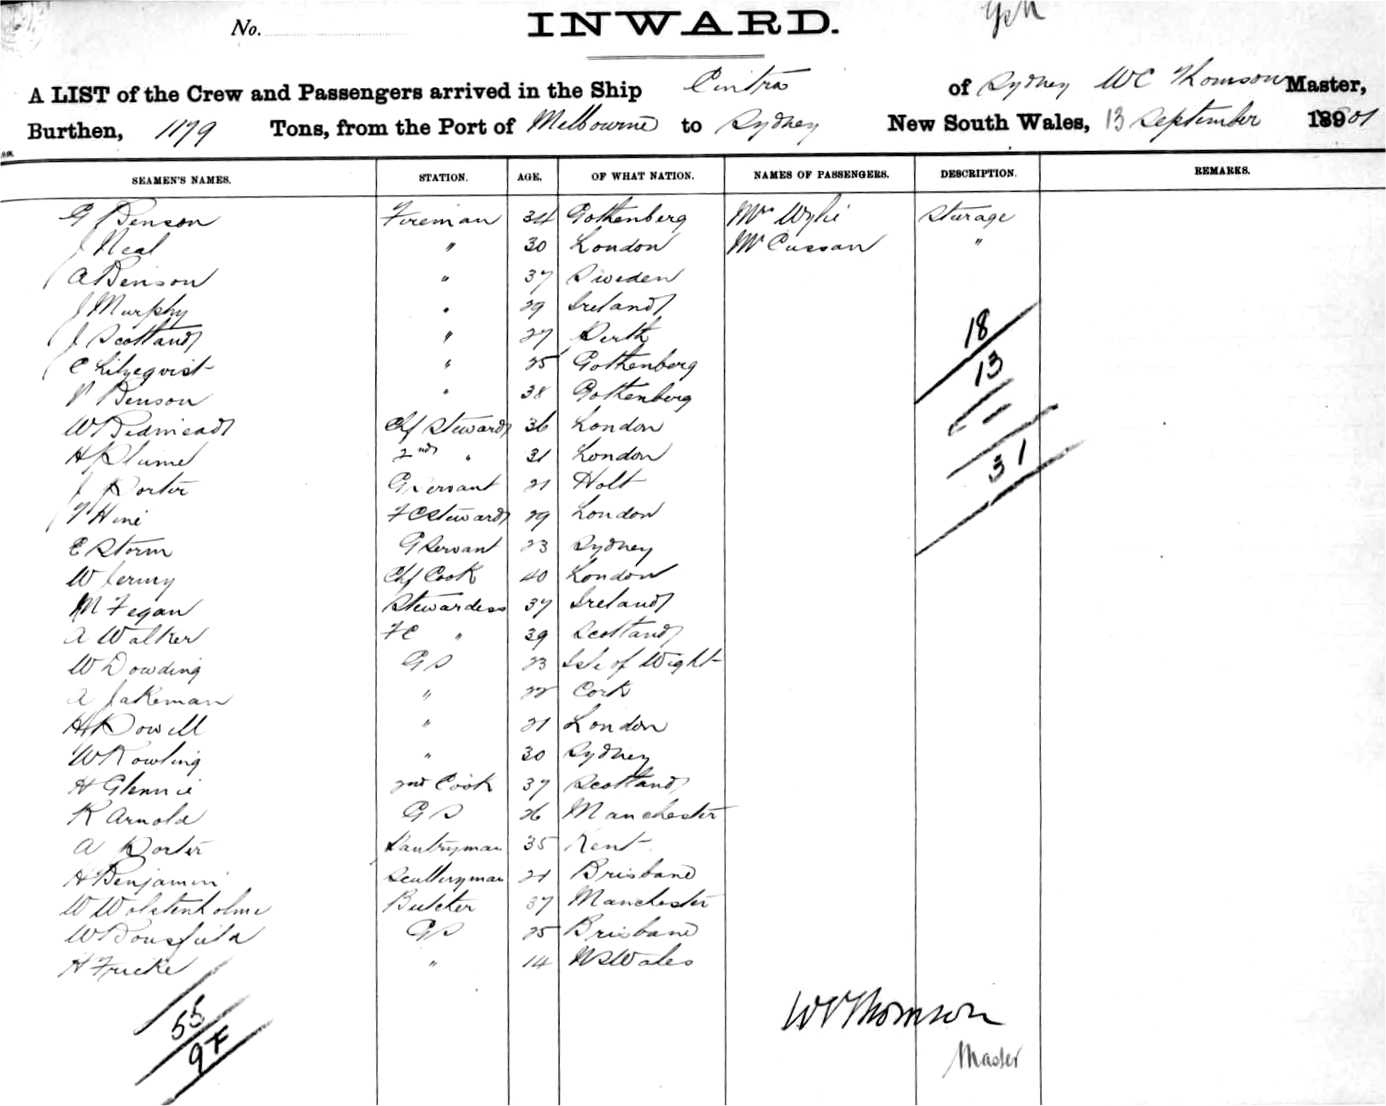 No.
INWARD.
A LIST of the Crew and Passengers arrived in the Ship Cintra of Sydney WC Thomson Master,
Burthen, 1179 Tons, from the Port of Melbourne to Sydney New South Wales, 13 September 1901
SEAMEN'S NAMES. STATION. AGE. OF WHAT NATION. NAMES OF PASSENGERS. DESCRIPTION. REMARKS.
G Benson Fireman 34 Gothenberg Mr Wylie Sturage
J Neal " 30 London Mr Cussan "
A Benson " 37 Sweden
J Murphy " 29 Ireland
J Scotland " 27 Perth 18
C Lilyeqvist " 25 Gothenberg 13
P Benson " 38 Gothenberg
W Bedmead Chf Steward 36 London
H Plume 2nd " 31 London 31
J Porter G Servant 21 Holt
T Hine FC Steward 29 London
E Storm G Servant 23 Sydney
W Jermy Chf Cook 40 London
M Fegan Stewardess 37 Ireland
A Walker FC " 39 Scotland
W Dowding GS 23 Isle of Wight
A Jakeman " 22 Cork
H Dowell " 21 London
W Rowling " 30 Sydney
H Glennie 2nd Cook 37 Scotland
R Arnold GS 26 Manchester
A Porter Pantryman 35 Kent
H Benjamin Sculleryman 21 Brisbane
W Wolstenholme Butcher 37 Manchester
W Bousfield GS 25 Brisbane
H Fricke " 14 NSWales
55
97
WC Thomson
Master